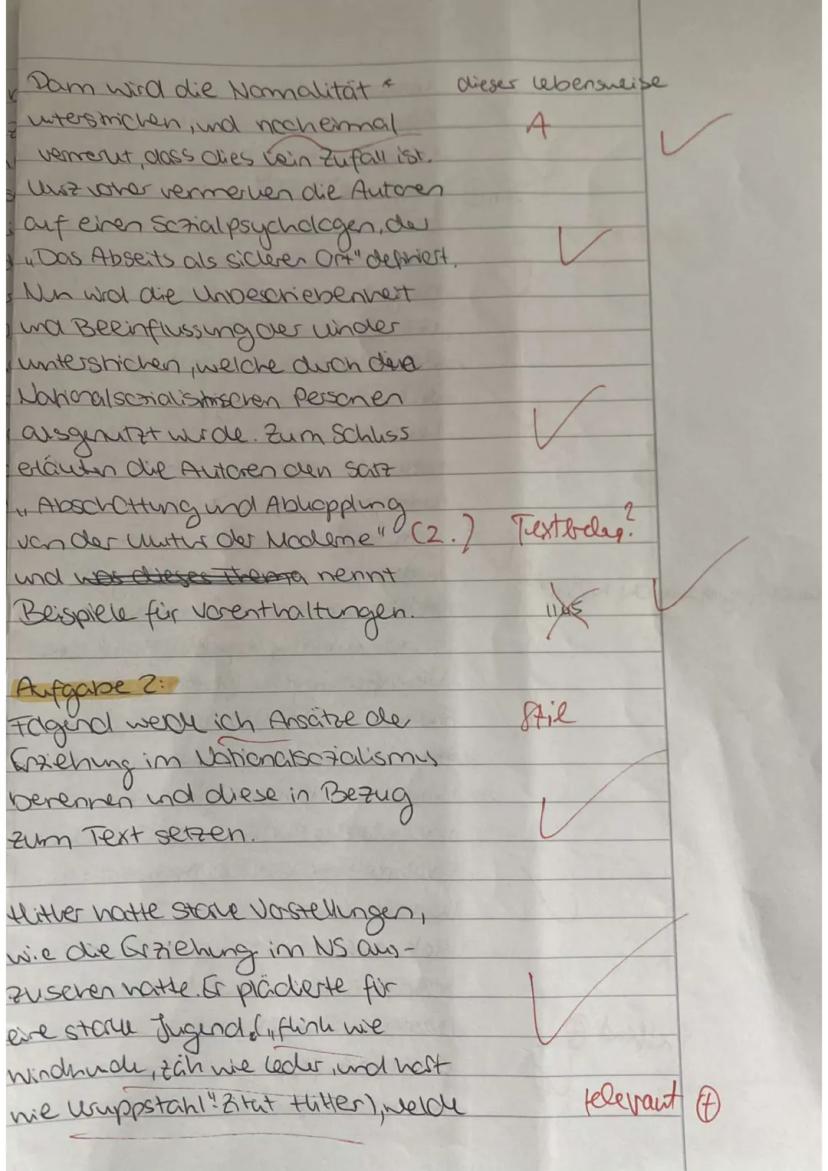 Dam wird die Normalität * dieser Lebensweise
unterstrichen, und nocheinmal A
vermerkt, dass dies kein Zufall ist.
Kurz vorher vermerken die Autoren
auf einen Sozialpsychologen, der
„Das Abseits als sicherer Ort" definiert.
Nun wird die Unbeschriebenheit
und Beeinflussung der Kinder
unterstrichen, welche durch die
Nationalsozialistischen Personen
ausgenutzt wurde. Zum Schluss
erläutern die Autoren den Satz
„Abschottung und Abkopplung
von der Kultur der Moderne" (Z. ) Textbeleg?
und was dieses Thema nennt
Beispiele für Vorenthaltungen.
Aufgabe 2:
Folgend werde ich Ansätze der Stil
Erziehung im Nationalsozialismus
benennen und diese in Bezug
zum Text setzen.
Hitler hatte starke Vorstellungen,
wie die Erziehung im NS aus-
zusehen hatte. Er plädierte für
eine starke Jugend („flink wie
Windhunde, zäh wie Leder, und hart
wie Kruppstahl" Zitat Hitler), welche relevant +